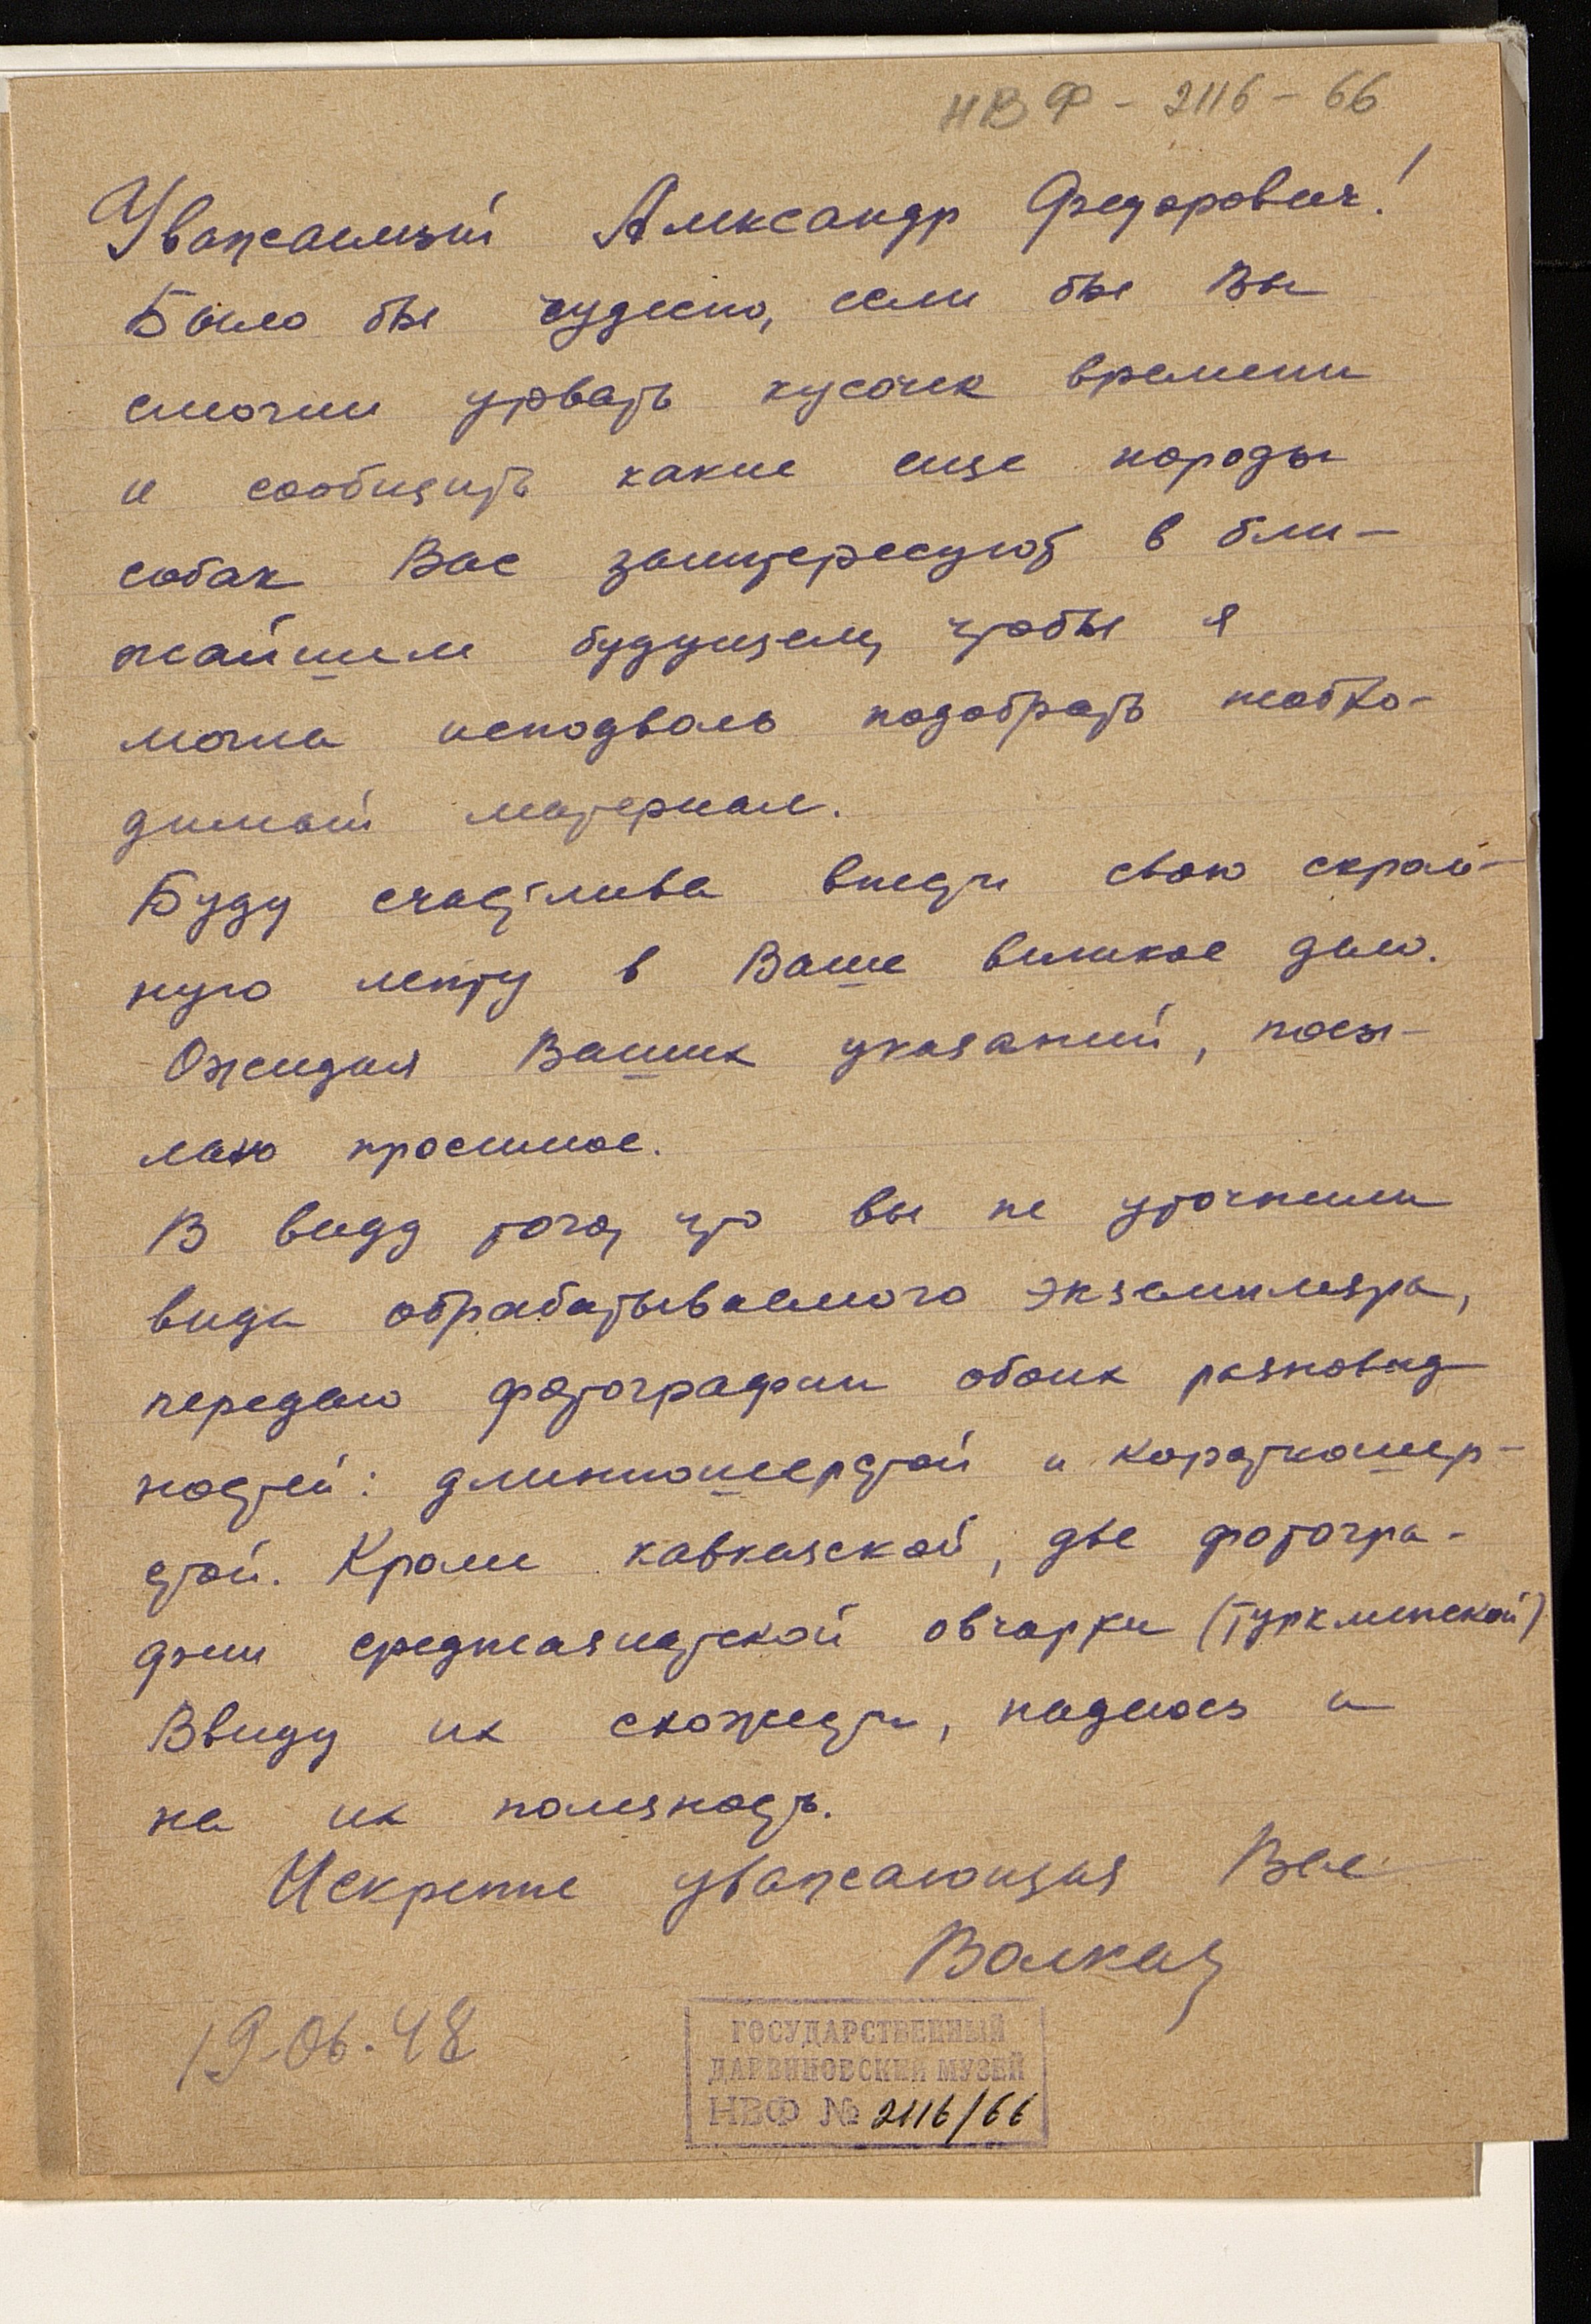 НВФ - 2116 - 66
Уважаемый Александр Федорович!
Было бы чудесно, если бы Вы
смогли урвать кусочек времени
и сообщить какие еще породы
собак Вас заинтересуют в бли-
жайшем будущем, чтобы я
могла исподволь подобрать необхо-
димый материал.
Буду счастлива внести свою скром-
ную лепту в Ваше великое дело.
Ожидая Ваших указаний, посы-
лаю просимое.
В виду того, что вы не уточнили
вида обрабатываемого экземпляра,
передаю фотографии обоих разновид-
ностей: длинношерстой и короткошер-
стой. Кроме кавказской, две фотогра-
фии среднеазиатской овчарки (Туркменской)
Ввиду их схожести, надеюсь и
на их полезность.
Искренне уважающая Вас
19.06.48
ГОСУДАРСТВЕННЫЙ
ДАРВИНОВСКИЙ МУЗЕЙ
НВФ № 2116/66